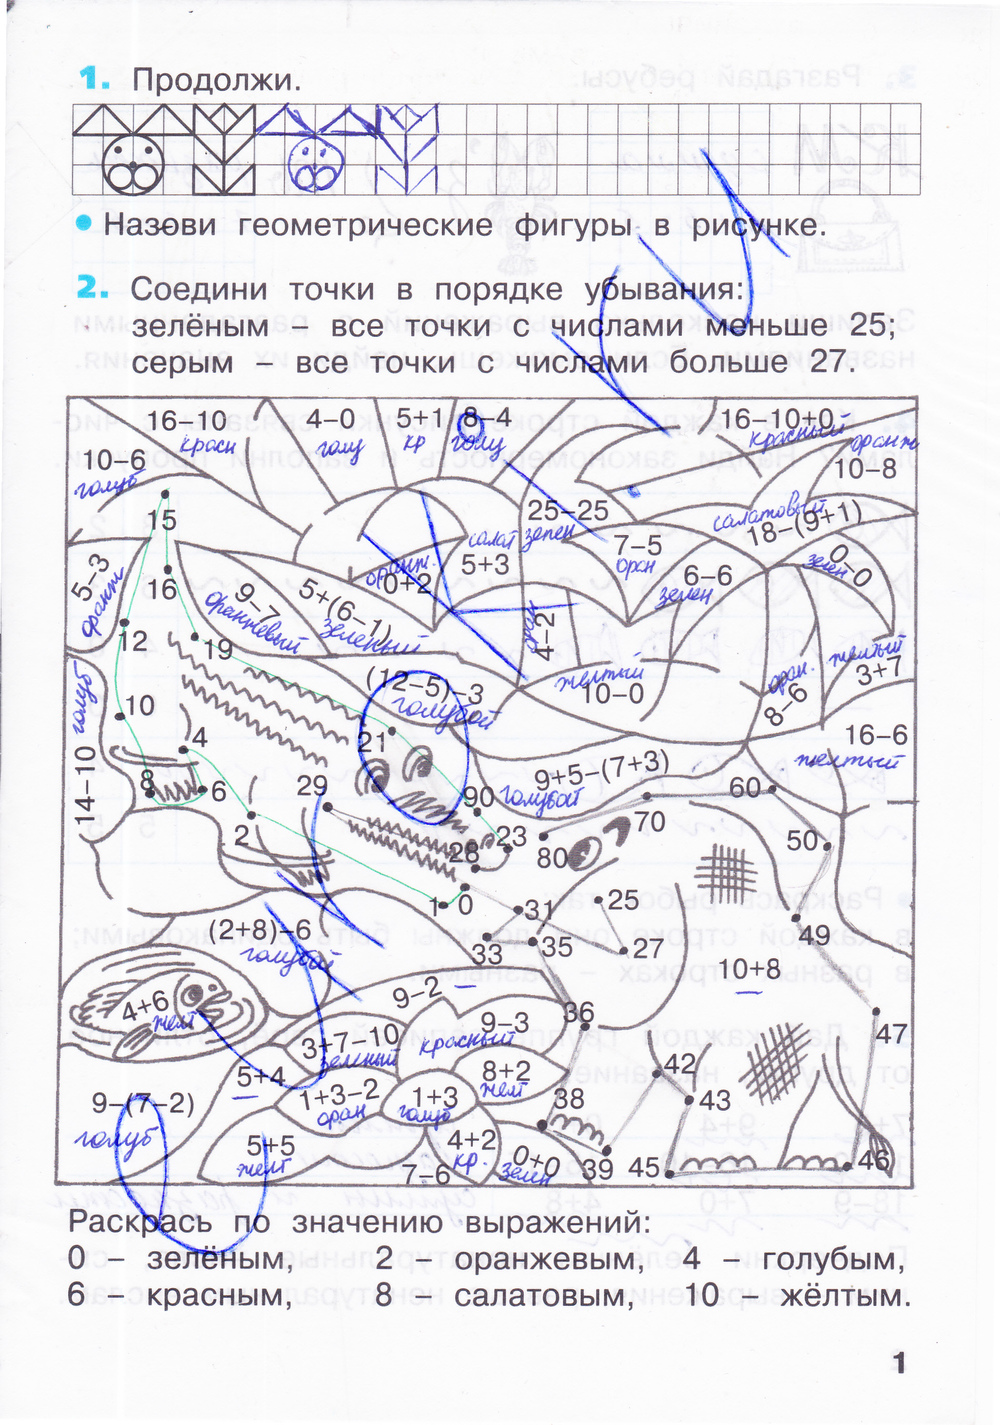 1. Продолжи.
• Назови геометрические фигуры в рисунке.
2. Соедини точки в порядке убывания:
зелёным – все точки с числами меньше 25;
серым – все точки с числами больше 27.
16–10
красн
4–0
голу
5+1
кр
8–4
голу
16–10+0
красный
оранж
10–8
10–6
голуб
15
25–25
зелен
салатовый
18–(9+1)
5–3
оранж
16
9–7
оранжевый
5+(6–1)
зеленый
оранж.
0+2
салат
5+3
7–5
оран
6–6
зелен
0–0
зелен
12
19
4–2
оран
(12–5)–3
голубой
желтый
10–0
оран.
8–6
желтый
3+7
10
голуб
14–10
4
21
16–6
желтый
8
6
29
90
9+5–(7+3)
голубой
60
2
23
70
50
28
80
1
0
31
25
(2+8)–6
голубой
33
35
27
49
10+8
4+6
желт
9–2
9–3
красный
36
47
3+7–10
зеленый
5+4
8+2
желт
42
9–(7–2)
голуб
1+3–2
оран
1+3
голуб
38
43
5+5
желт
4+2
кр.
7–6
0+0
зелен
39
45
46
Раскрась по значению выражений:
0 – зелёным, 2 – оранжевым, 4 – голубым,
6 – красным, 8 – салатовым, 10 – жёлтым.
1